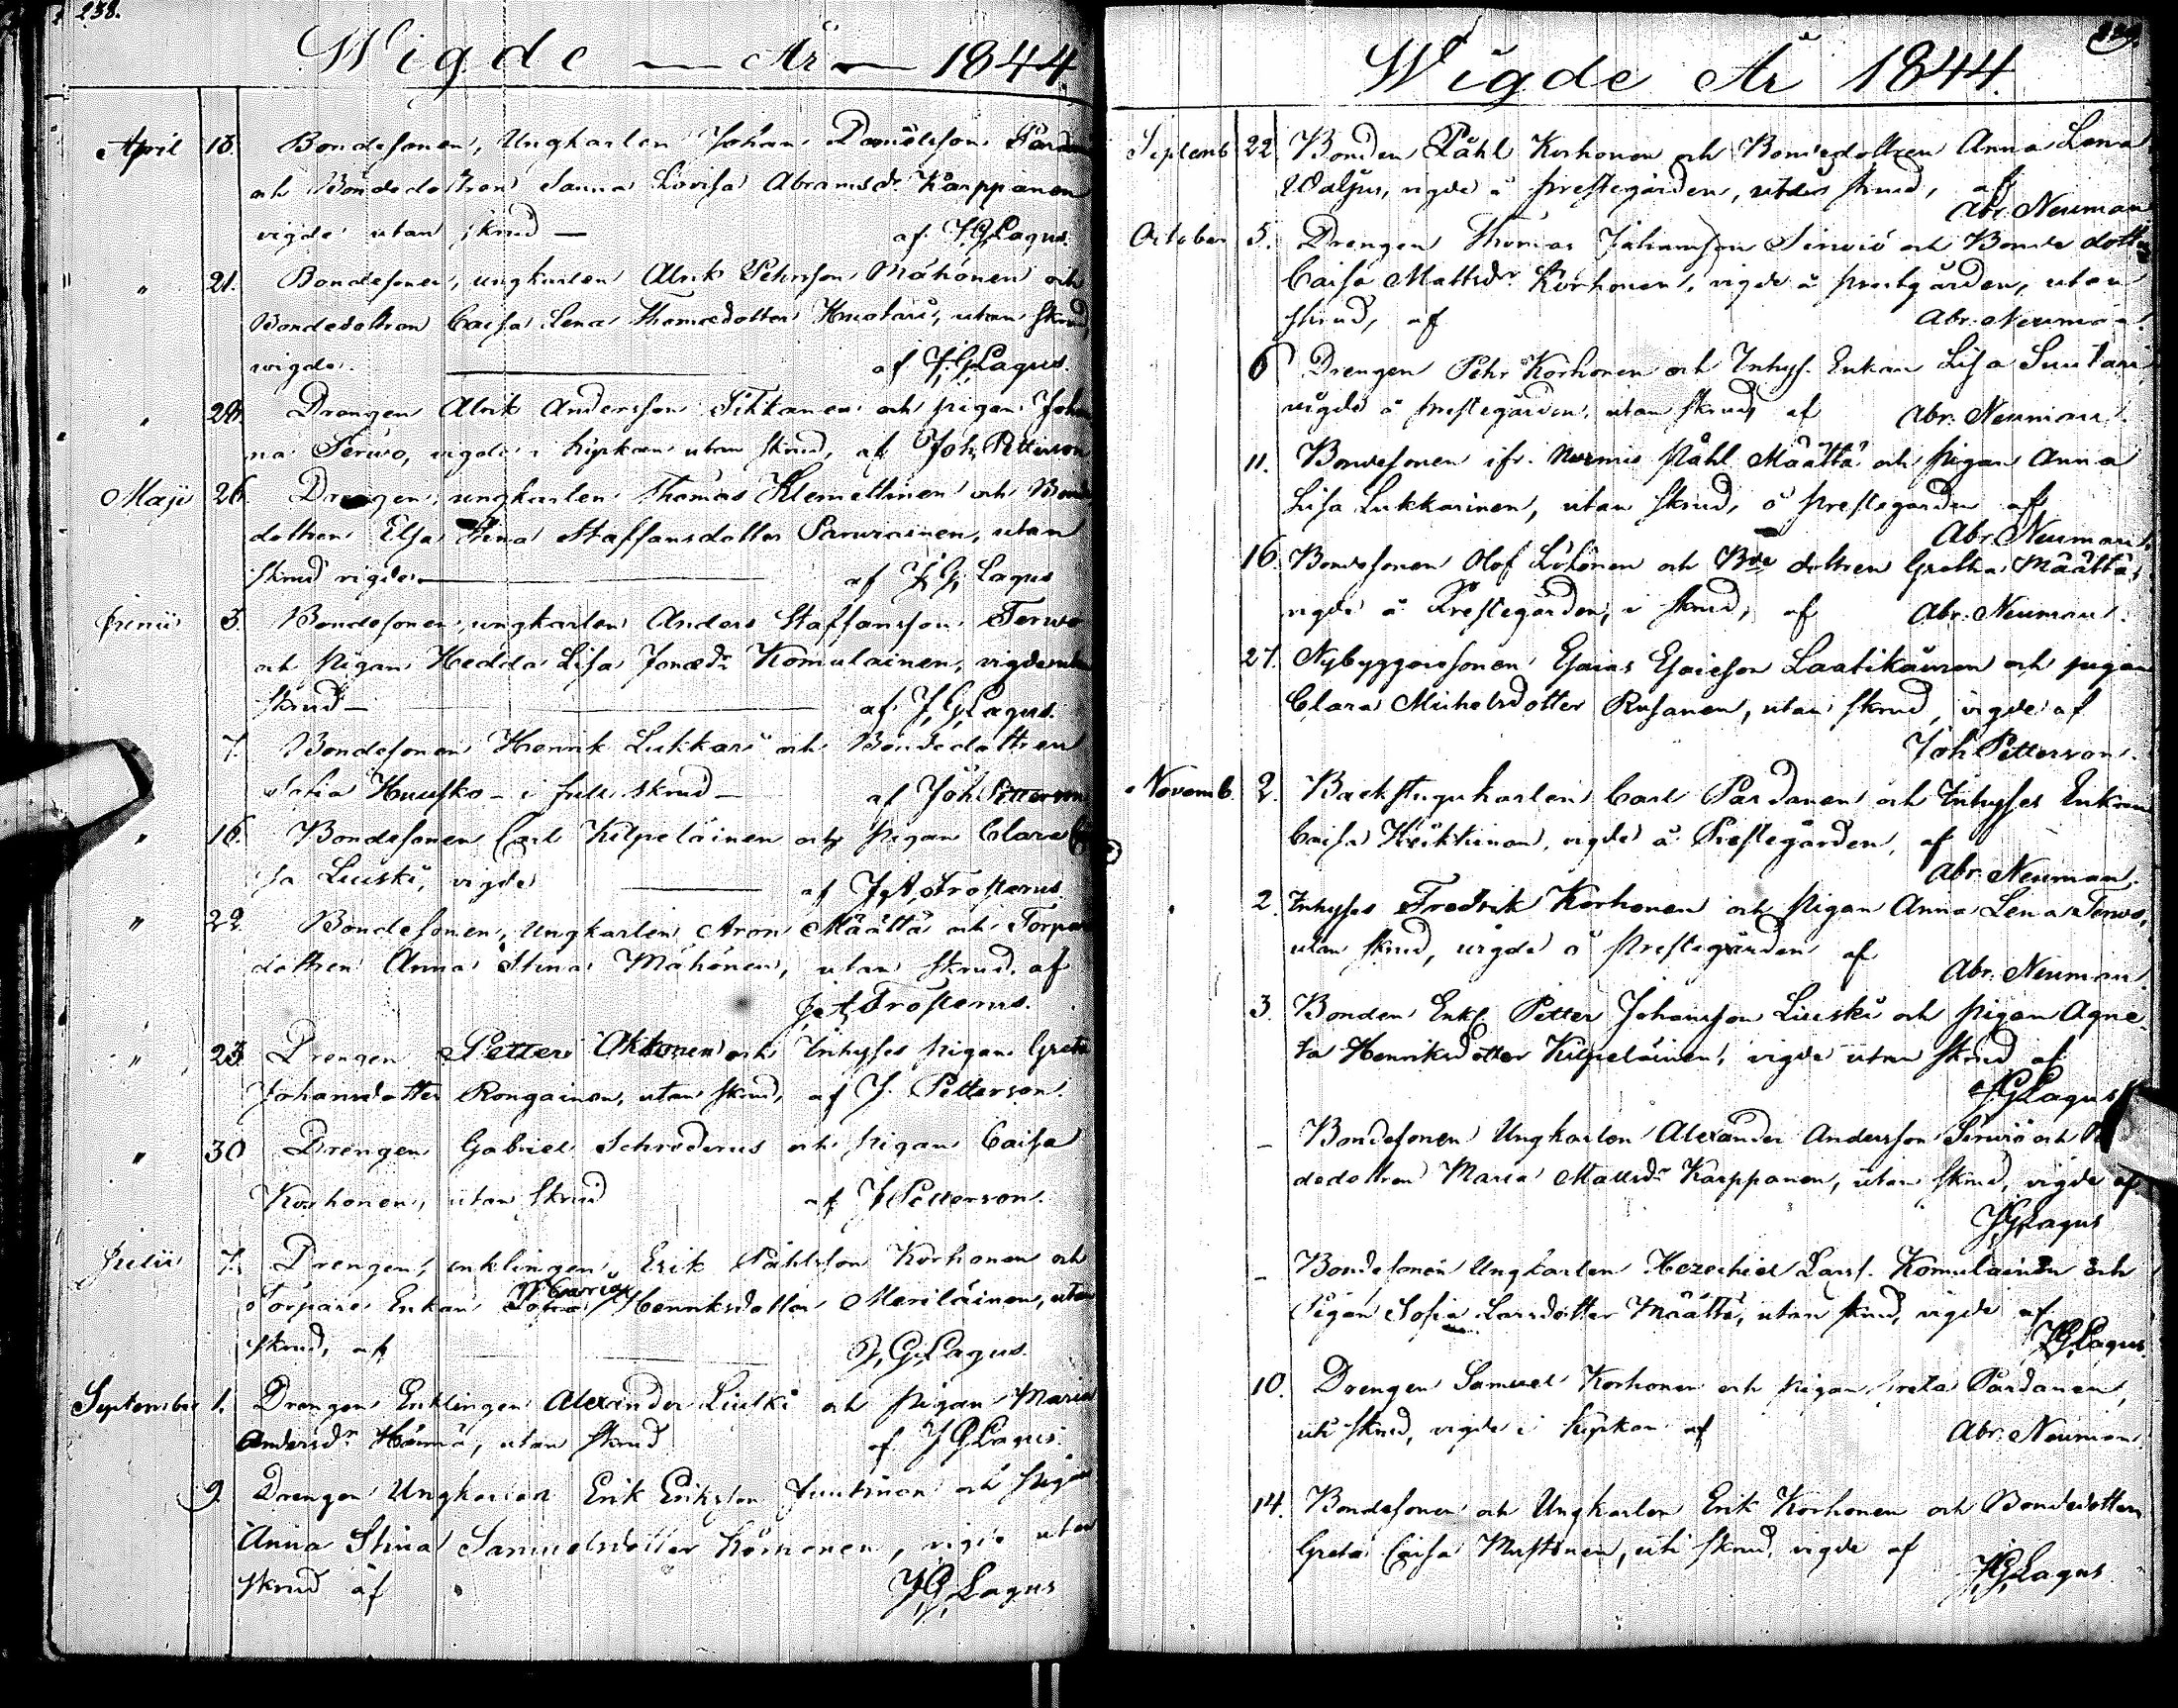 238.
Wigde — År — 1844.
April 18. Bondesonen, Ungkarlen Johan Danielsson Pardan
och Bondedottren Sanna Lovisa Abramsdr Karppanen
vigde utan skrud — af J.G. Lagus.
" 21. Bondesonen, ungkarlen Alrik Pehrsson Mähönen och
Bondedottren Caisa Lena Thomædotter Huotari, utan skrud,
wigde. af J.G. Lagus.
" 28. Drengen Alrik Andersson Tikkanen och pigan Johan
na Serwo, vigde i kyrkan utan skrud, af Joh. Petterson
Maji 26. Drengen, ungkarlen Thomas Klemettinen och Bonde
dottren Elsa Stina Staffansdotter Parwiainen, utan
skrud vigde — af J.G. Lagus
Junii 3. Bondesonen, ungkarlen Anders Staffansson Terwo
och Pigan Hedda Lisa Jonædr Komulainen, vigde utan
skrud — af J.G. Lagus.
7. Bondesonen Henrik Lukkari och Bondedottren
Sofia Huusko - i full skrud - af Joh. Petterson
" 16. Bondesonen Carl Kilpeläinen och pigan Clara
sa Liuski, vigde af J.A. Frosterus
" 22. Bondesonen, Ungkarlen Aron Määttä och Torpare
dottren Anna Stina Mähönen, utan skrud, af
J.A. Frosterus.
" 23. Drengen Petter Akkonen och Inhyses pigan Greta
Johansdotter Rongainen, utan skrud, af J. Petterson.
" 30 Drengen Gabriel Schroderus och pigan Caisa
Korhonen, utan skrud af J. Petterson.
Julii 7. Drengen, enklingen Erik Påhlsson Korhonen och
Walborg
Torpare Enkan Henriksdotter Meriläinen, utan
skrud, af J.G. Lagus.
September 1. Drengen Enklingen Alexander Liuski och pigan Maria
Andersdr Härmä, utan skrud af J.G. Lagus.
9. Drengen Ungkarlen Erik Eriksson Juutinen och pigan
Anna Stina Samuelsdotter Komonen, vigde utan
skrud af J.G. Lagus
239.
Wigde År 1844.
Septemb 22 Bonden Påhl Korhonen och Bondedottren Anna Lena
Waljus, vigde å prestegården, utan skrud, af
Abr. Neuman
October 5. Drengen Thomas Johansson Sirviö och Bonde dotter
Caisa Mattsdr Korhonen, vigde å prestgården, utan
skrud, af Abr. Neuman.
6 Drengen Pehr Korhonen och Inhys. Enkan Lisa Suutari
vigde å prestegården, utan skrud, af Abr. Neuman.
11. Bondesonen ifr. Nurmis Påhl Määttä och pigan Anna
Lisa Lukkarinen, utan skrud, å prestegården af
Abr. Neuman.
16. Bondesonen Olof Löhönen och Bde dottren Gretha Määttä,
vigde å Prestegården, i skrud, af Abr. Neuman.
27. Nybyggaresonen Esaias Esaieson Laatikainen och pigan
Clara Michelsdotter Rusanen, utan skrud, vigde af
Joh. Petterson.
Novemb. 2. Backstugukarlen Carl Pardanen och Inhyses Enkan
Caisa Heikkinen, vigde å Prestegården, af
Abr. Neuman.
2. Inhyses Fredrik Korhonen och pigan Anna Lena Terwo,
utan skrud, vigde å prestegården af
Abr. Neuman.
3. Bonden Enkl. Petter Johansson Liuski och pigan Agne
ta Henriksdotter Kilpeläinen, vigde utan skrud af
J.G. Lagus
- Bondesonen Ungkarlen Alexander Andersson Sirviö och
dedottren Maria Mattsdr Karppanen, utan skrud, vigde af
J.G. Lagus
- Bondesonen Ungkarlen Hezechiel Larss. Komulainen och
Pigan Sofia Larsdotter Määttä, utan skrud, vigde af
J.G. Lagus.
10. Drengen Samuel Korhonen och pigan Greta Pardanen,
uti skrud, vigde i kyrkan af Abr. Neuman.
14. Bondesonen och Ungkarlen Erik Korhonen och Bondedottren
Greta Caisa Mustonen, uti skrud, vigde af
J.G. Lagus